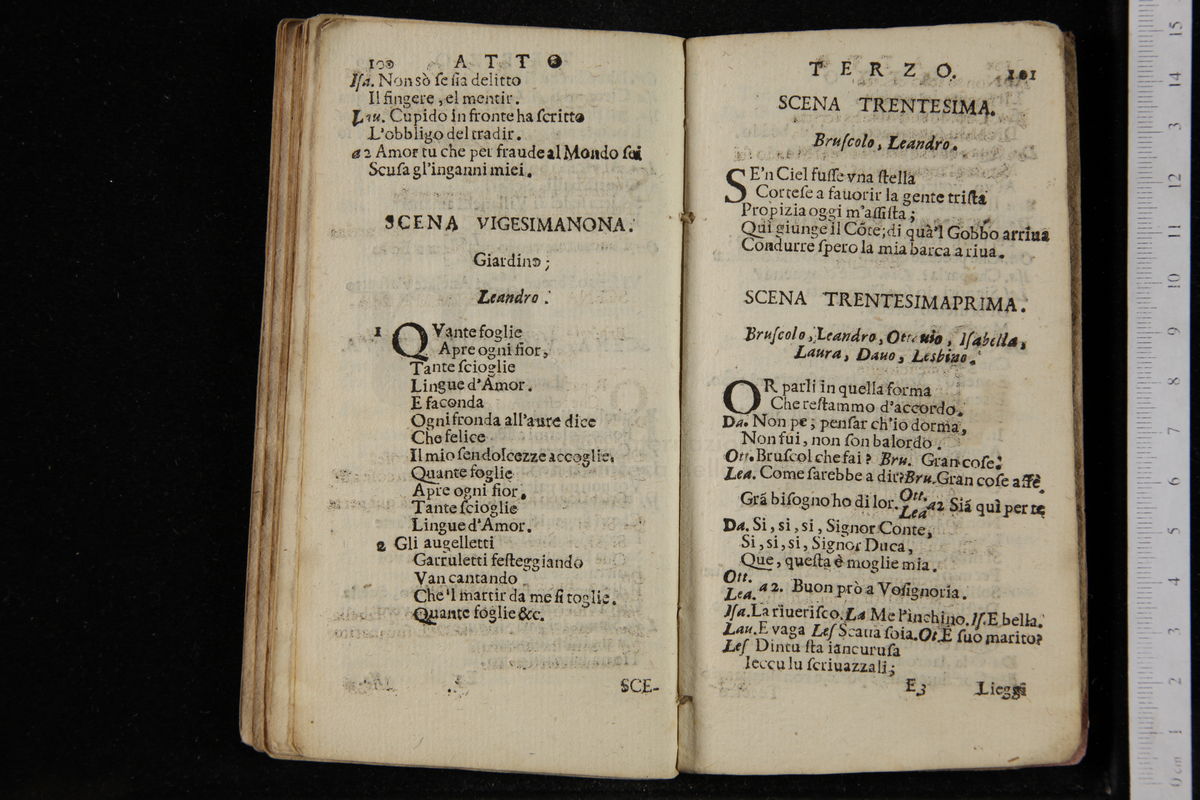 100 ATTO
Iſa. Non sò ſe ſia delitto
Il fingere, el mentir.
Lau. Cupido in fronte ha ſcritto
L'obbligo del tradir.
a 2 Amor tu che per fraude al Mondo ſei
Scuſa gl'inganni miei.
SCENA VIGESIMANONA.
Giardino;
Leandro.
1 QVante foglie
Apre ogni fior,
Tante ſcioglie
Lingue d'Amor.
E faconda
Ogni fronda all'aure dice
Che felice
Il mio ſen dolcezze accoglie.
Quante foglie
Apre ogni fior.
Tante ſcioglie
Lingue d'Amor.
2 Gli augelletti
Garruletti feſteggiando
Van cantando
Che'l martir da me ſi toglie.
Quante foglie &c.
SCE-
TERZO. 101
SCENA TRENTESIMA.
Bruſcolo, Leandro.
SE'n Ciel fuſſe vna ſtella
Corteſe a fauorir la gente triſta
Propizia oggi m'aſſiſta;
Quì giunge il Cōte; di quà'l Gobbo arriua
Condurre ſpero la mia barca a riua.
SCENA TRENTESIMAPRIMA.
Bruſcolo, Leandro, Ottauio, Iſabella,
Laura, Dauo, Lesbino.
OR parli in quella forma
Che reſtammo d'accordo.
Da. Non pe; penſar ch'io dorma,
Non fui, non ſon balordo.
Ott. Bruſcol che fai? Bru. Gran coſe.
Lea. Come ſarebbe a dir? Bru. Gran coſe affè.
Grā biſogno ho di lor. Ott. Lea a2 Siā quì per te
Da. Si, si, si, Signor Conte,
Si, si, si, Signor Duca,
Que, queſta è moglie mia.
Ott.
Lea. a2. Buon prò a Voſignoria.
Iſa. La riueriſco. La Me l'inchino. Iſ. E bella.
Lau. E vaga Leſ Scaua ſoia. Ot. E ſuo marito?
Leſ Dintu ſta iancuruſa
Ieccu lu ſcriuazzali;
E3 Lieggi